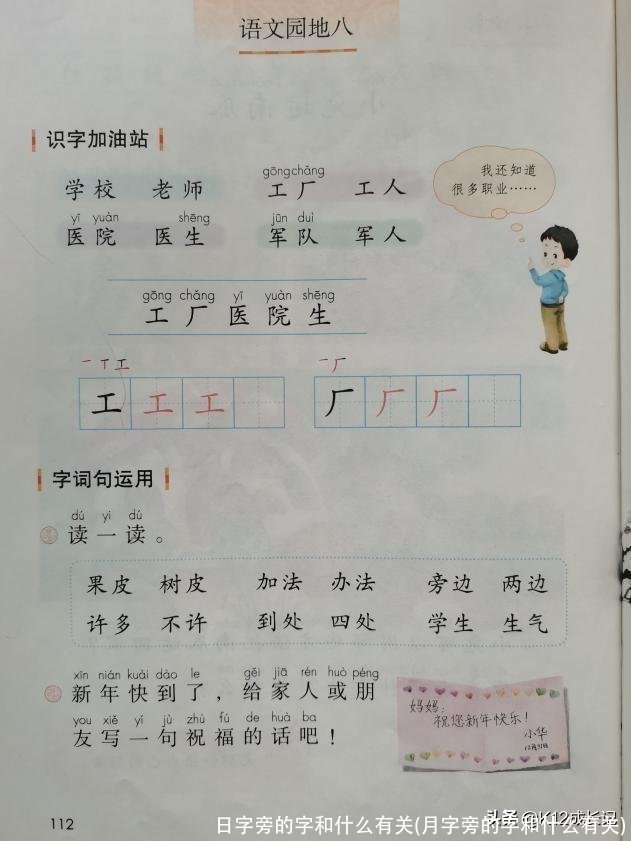 语文园地八
识字加油站
gōng chǎng
学校 老师 工厂 工人
我还知道
很多职业……
yī yuàn shēng jūn duì
医院 医生 军队 军人
gōng chǎng yī yuàn shēng
工厂医院生
一丅工 一厂
工 工 工 厂 厂 厂
字词句运用
dú yi dú
读一读。
果皮 树皮 加法 办法 旁边 两边
许多 不许 到处 四处 学生 生气
xīn nián kuài dào le gěi jiā rén huò péng
新年快到了，给家人或朋
you xiě yí jù zhù fú de huà ba
友写一句祝福的话吧！
妈妈：
祝您新年快乐！
小华
12月31日
112
头条 @K12成长记
日字旁的字和什么有关(月字旁的字和什么有关)